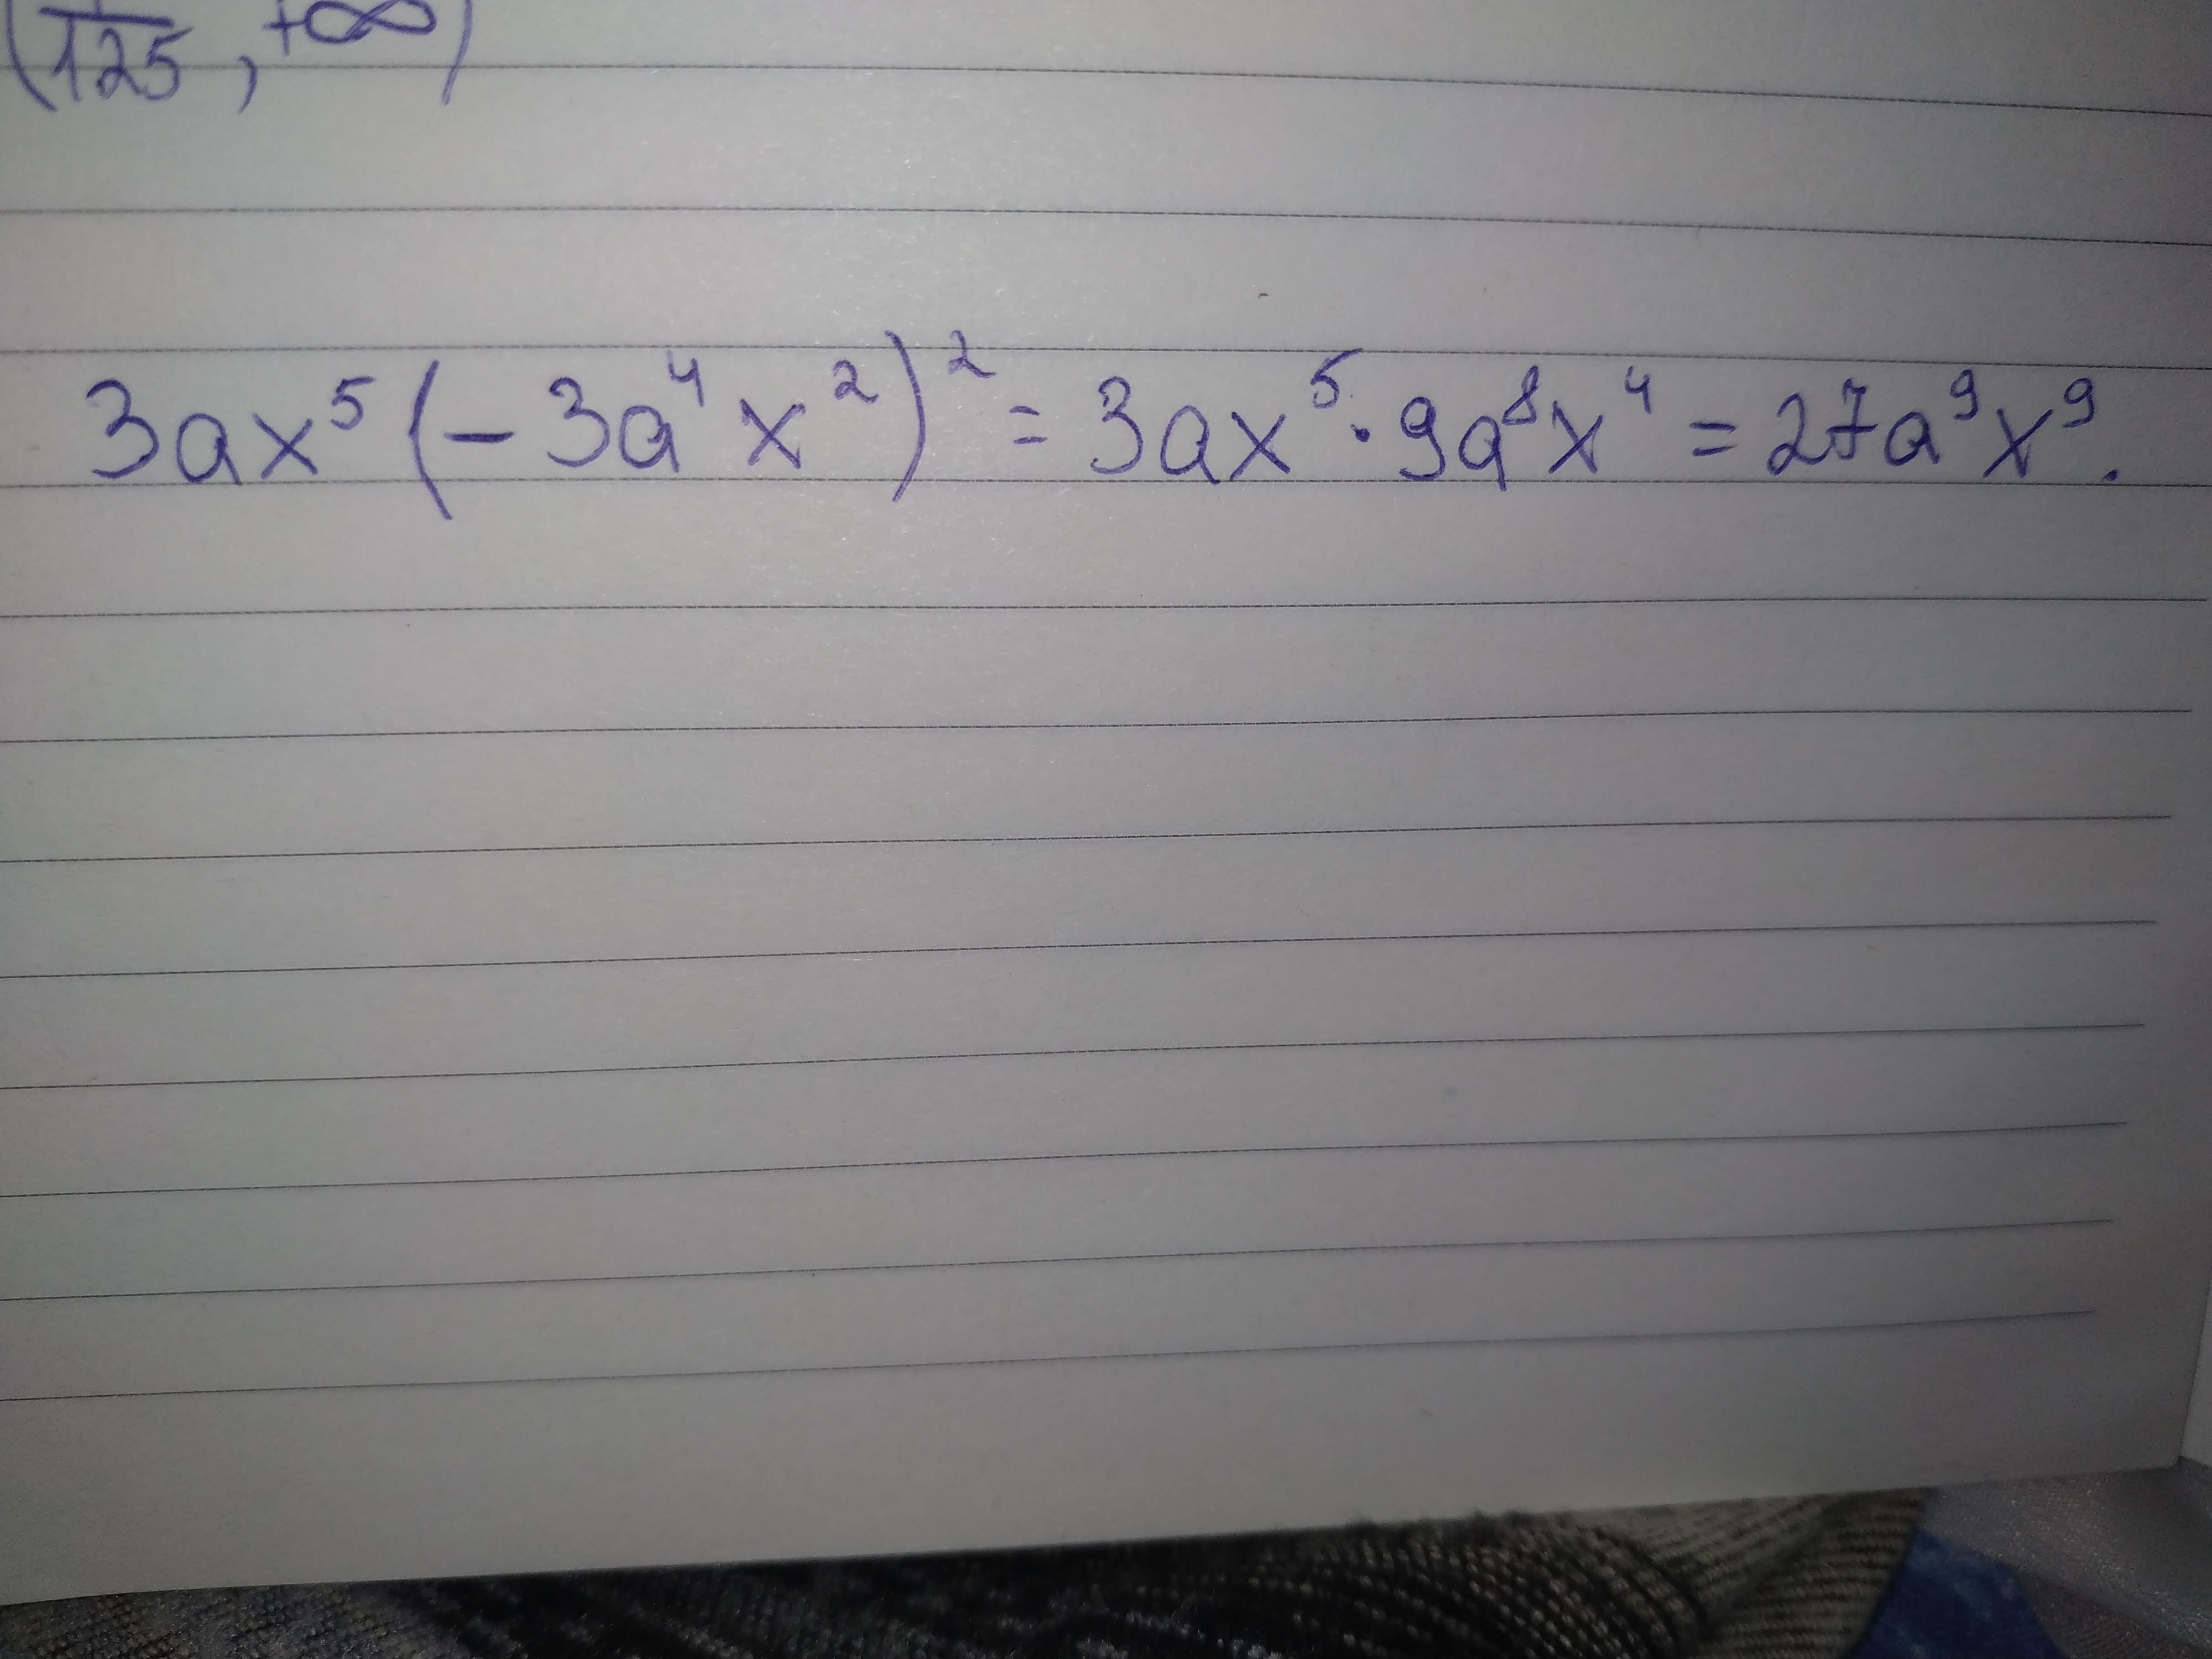 (1/125, +∞)
3ax⁵(-3a⁴x²)² = 3ax⁵·9a⁸x⁴ = 27a⁹x⁹.